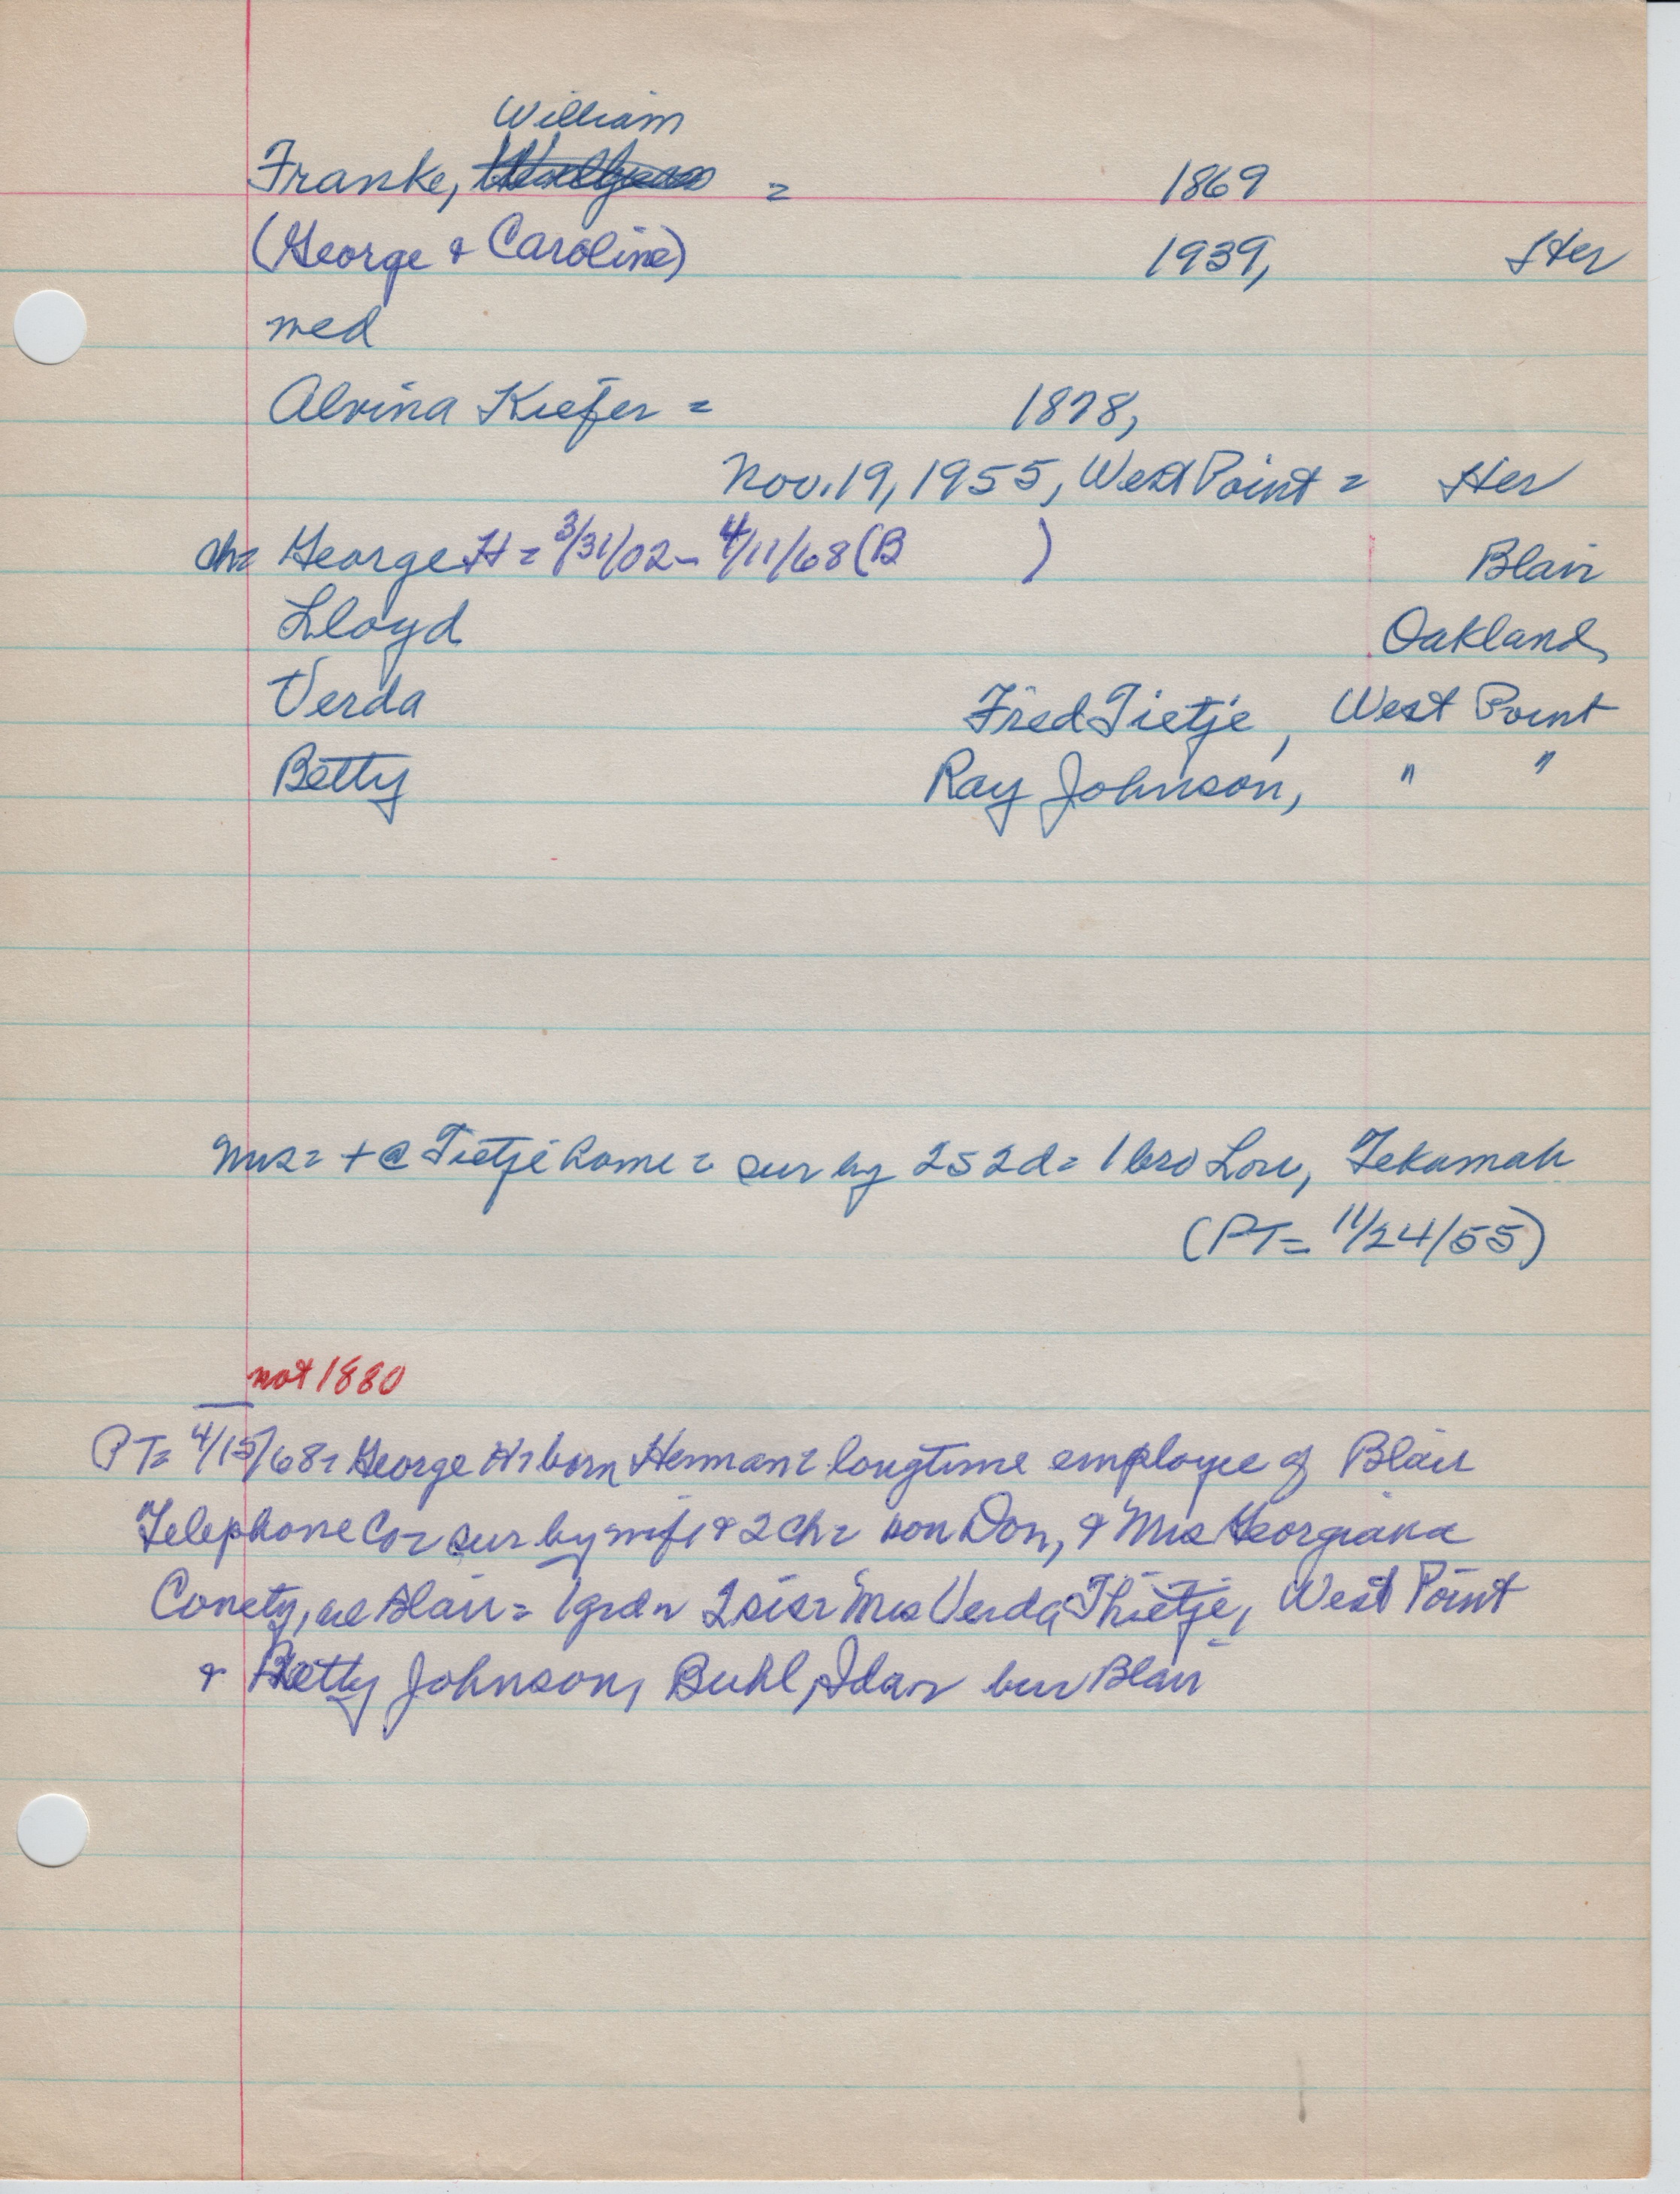 William
Franke, = 1869
(George & Caroline) 1939, Her
med
Alvina Kiefer = 1878,
Nov. 19, 1955, West Point = Her
ch= George H = 3/31/02 - 4/11/68 (B )  Blair
Lloyd Oakland,
Verda Fred Tietje, West Point
Betty Ray Johnson, " "
Mrs = + @ Tietje home = sur by 2s 2d = 1 bro Lou, Tekamah
(PT= 11/24/55)
not 1880
PT= 4/15/68= George H= born Herman= longtime employee of Blair
Telephone Co= sur by wife & 2 ch= son Don, & Mrs Georgiana
Conety, all Blair = 1 grd = 2 sis= Mrs Verda Thietje, West Point
& Betty Johnson, Buhl, Ida= bur Blair